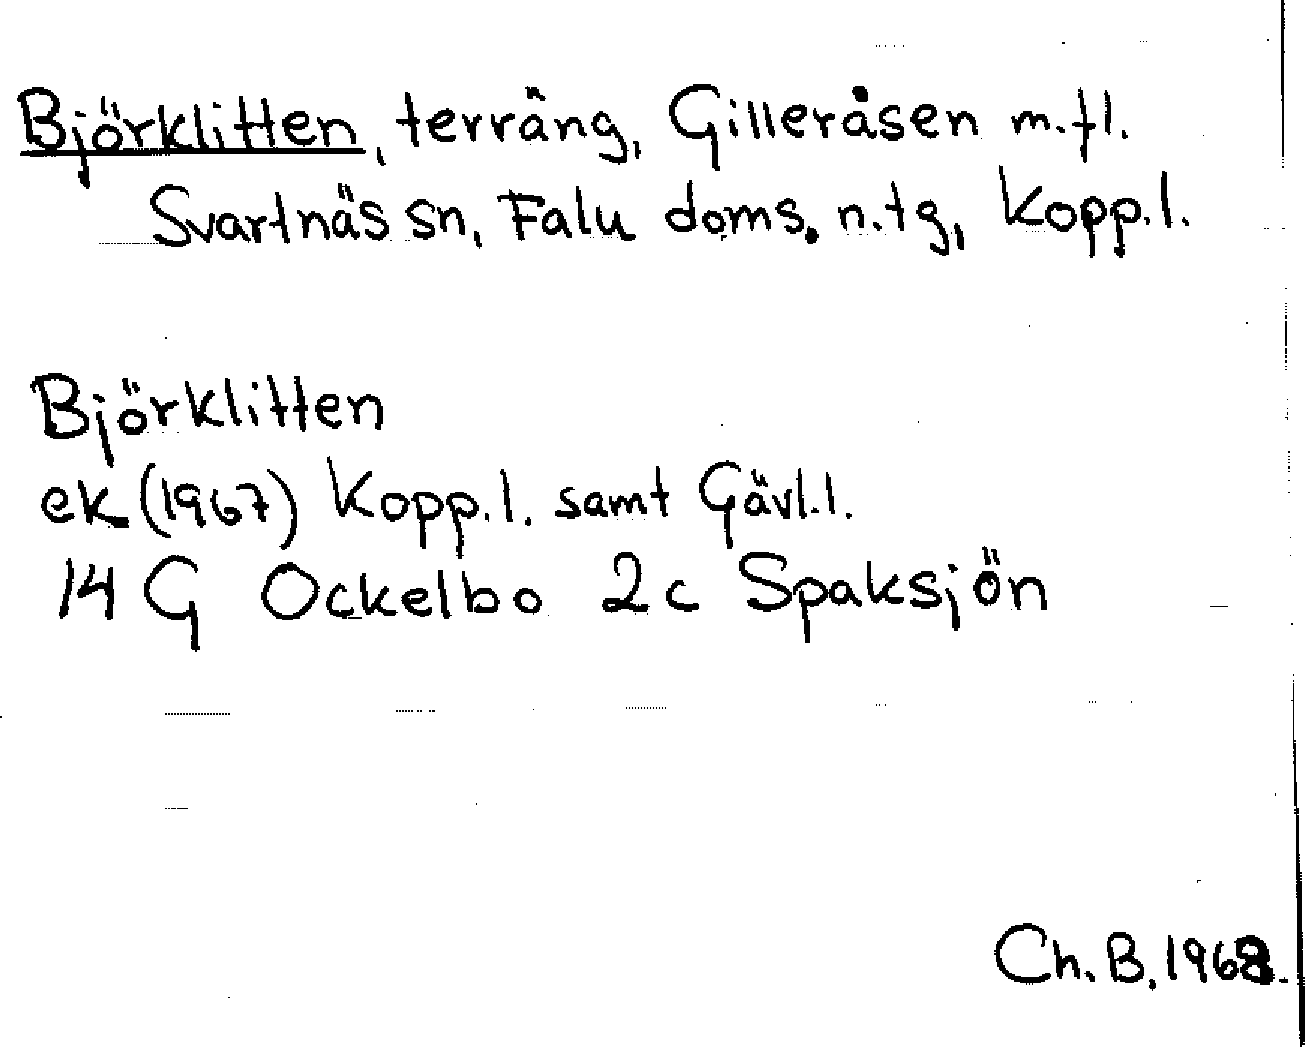 Björklitten, terräng, Gilleråsen m.fl.
Svartnäs sn, Falu doms. n.tg, Kopp.l.
Björklitten
ek (1967) Kopp.l. samt Gävl.l.
14 G Ockelbo 2c Spaksjön
Ch. B. 1968.